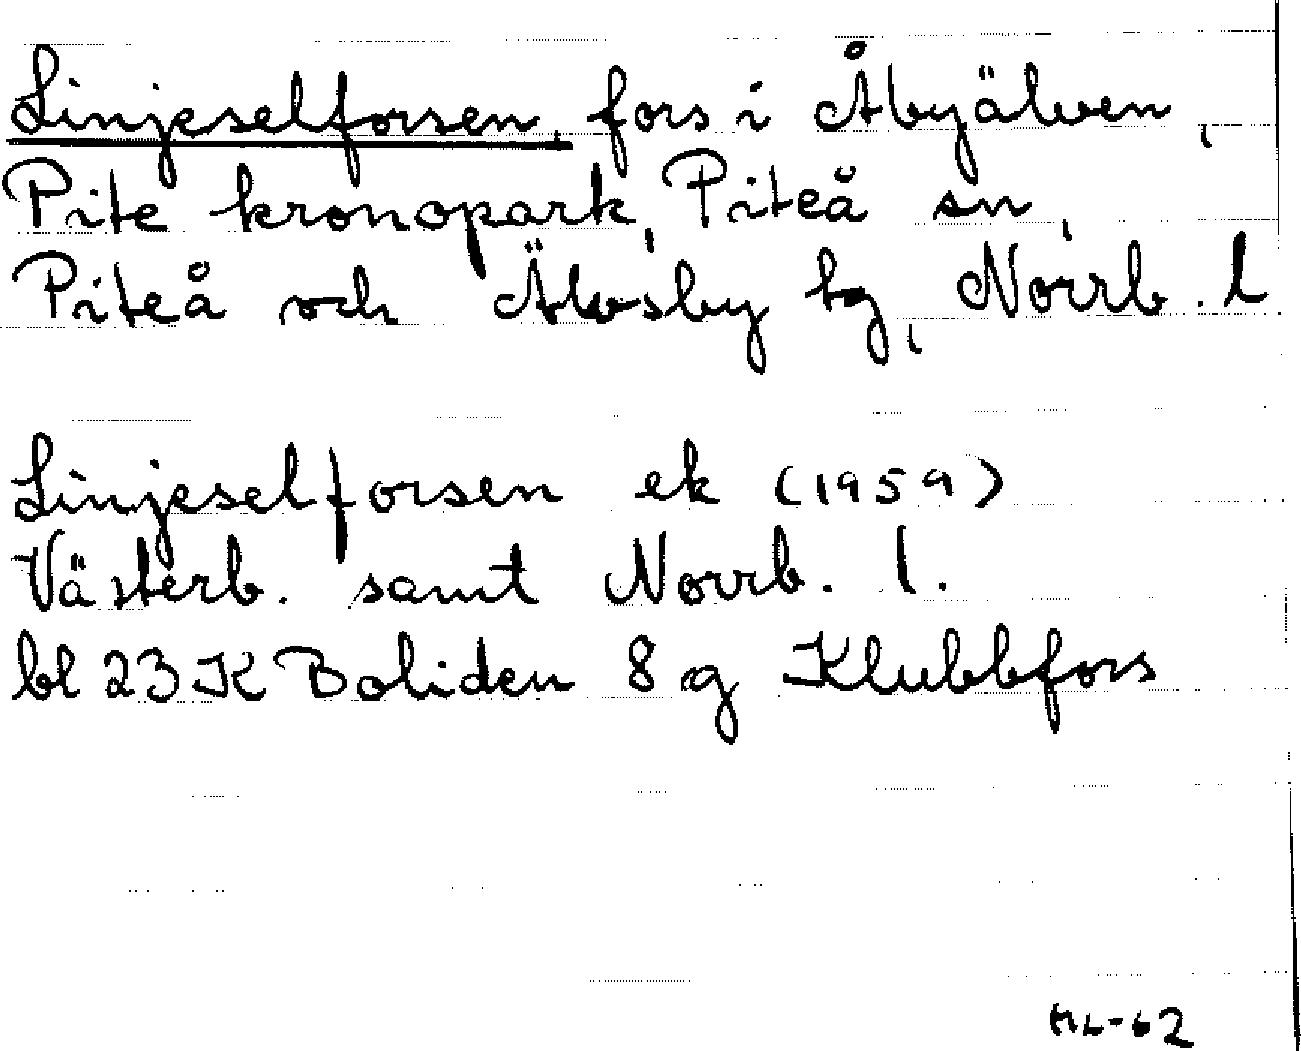 Linjeselforsen, fors i Åbyälven,
Pite kronopark, Piteå sn,
Piteå och Älvsby tg, Norrb. l
Linjeselforsen ek (1959)
Västerb. samt Norrb. l.
bl 23K Boliden 8g Klubbfors
ML-62